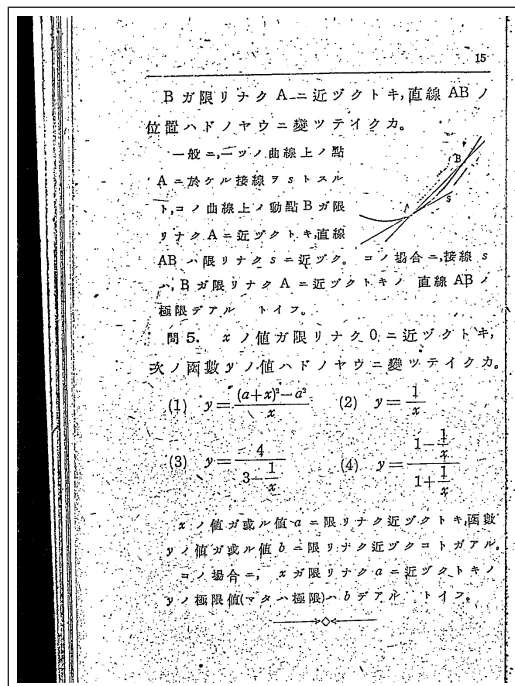 15
B ガ限リナク A ニ近ヅクトキ,直線 AB ノ
位置ハドノヤウニ變ツテイクカ。
一般ニ,一ツノ曲線上ノ點
A ニ於ケル接線ヲ s トスル
ト,コノ曲線上ノ動點 B ガ限
リナク A ニ近ヅクトキ,直線
AB ハ限リナク s ニ近ヅク。 コノ場合ニ,接線 s
ハ, B ガ限リナク A ニ近ヅクトキノ 直線 AB ノ
極限デアル トイフ。
B
A
s
問 5. x ノ値ガ限リナク 0 ニ近ヅクトキ,
次ノ函數 y ノ値ハドノヤウニ變ツテイクカ。
(1) y=\frac{(a+x)²-a²}{x} (2) y=\frac{1}{x}
(3) y=\frac{4}{3-\frac{1}{x}} (4) y=\frac{1-\frac{1}{x}}{1+\frac{1}{x}}
x ノ値ガ或ル値 a ニ限リナク近ヅクトキ,函數
y ノ値ガ或ル値 b ニ限リナク近ヅクコトガアル。
コノ場合ニ, x ガ限リナク a ニ近ヅクトキノ
y ノ極限値(マタハ極限)ハ b デアル トイフ。